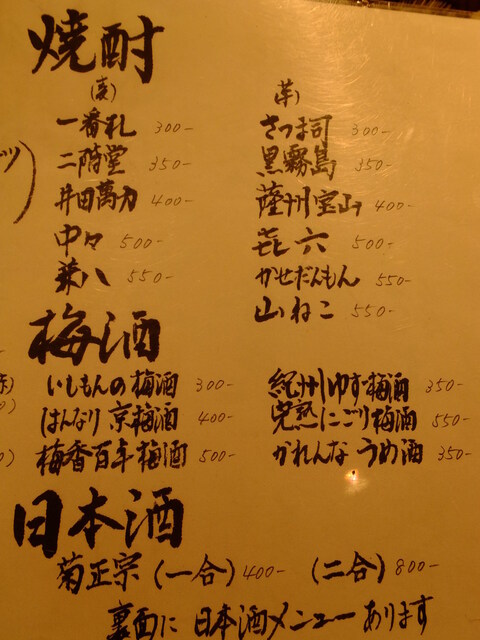 焼酎
(麦)
一番札 300-
二階堂 350-
井田萬力 400-
中々 500-
兼八 550-
(芋)
さつま司 300-
黒霧島 350-
薩州宝山 400-
㐂六 500-
かせだんもん 550-
山ねこ 550-
梅酒
いしもんの梅酒 300-
はんなり京梅酒 400-
梅香百年梅酒 500-
紀州ゆず梅酒 350-
完熟にごり梅酒 550-
かれんなうめ酒 350-
日本酒
菊正宗 (一合) 400- (二合) 800-
裏面に日本酒メニューあります